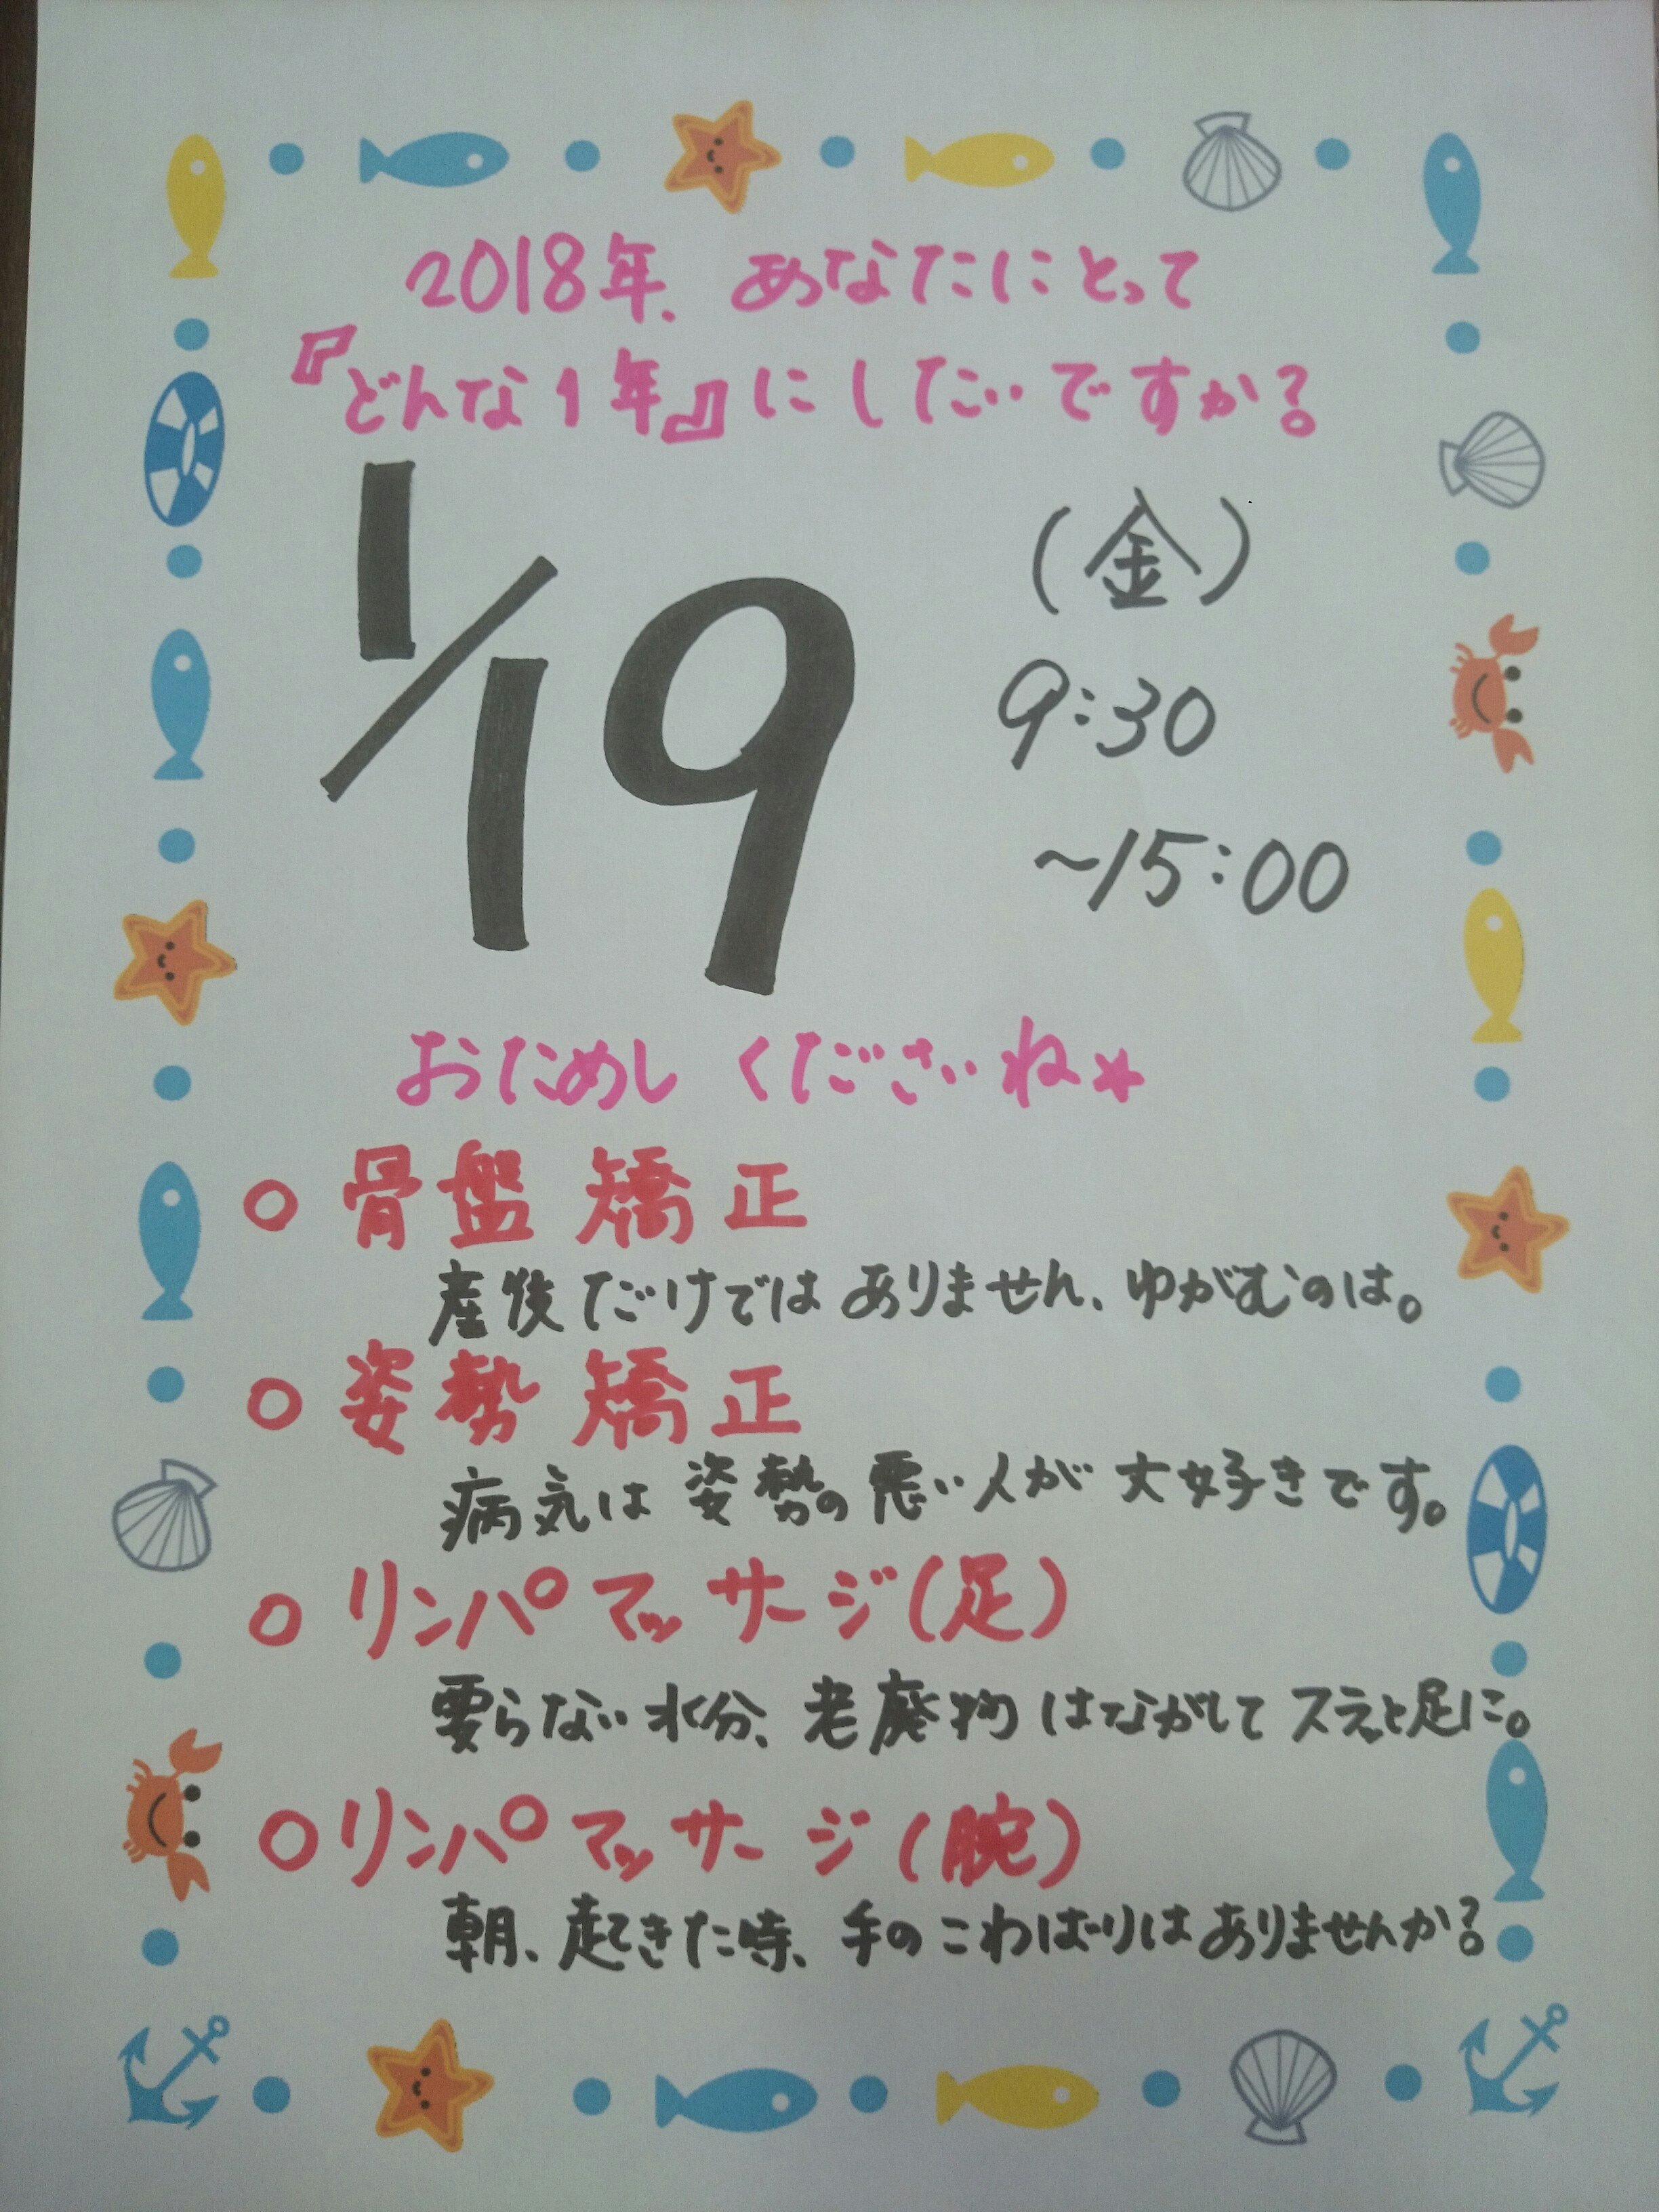 2018年、あなたにとって
『どんな1年』にしたいですか?
1/19
(金)
9:30
~15:00
おためしくださいね☆
○骨盤矯正
産後だけではありません、ゆがむのは。
○姿勢矯正
病気は姿勢の悪い人が大好きです。
○リンパマッサージ(足)
要らない水分、老廃物はながしてスラっと足に。
○リンパマッサージ(腕)
朝、起きた時、手のこわばりはありませんか?